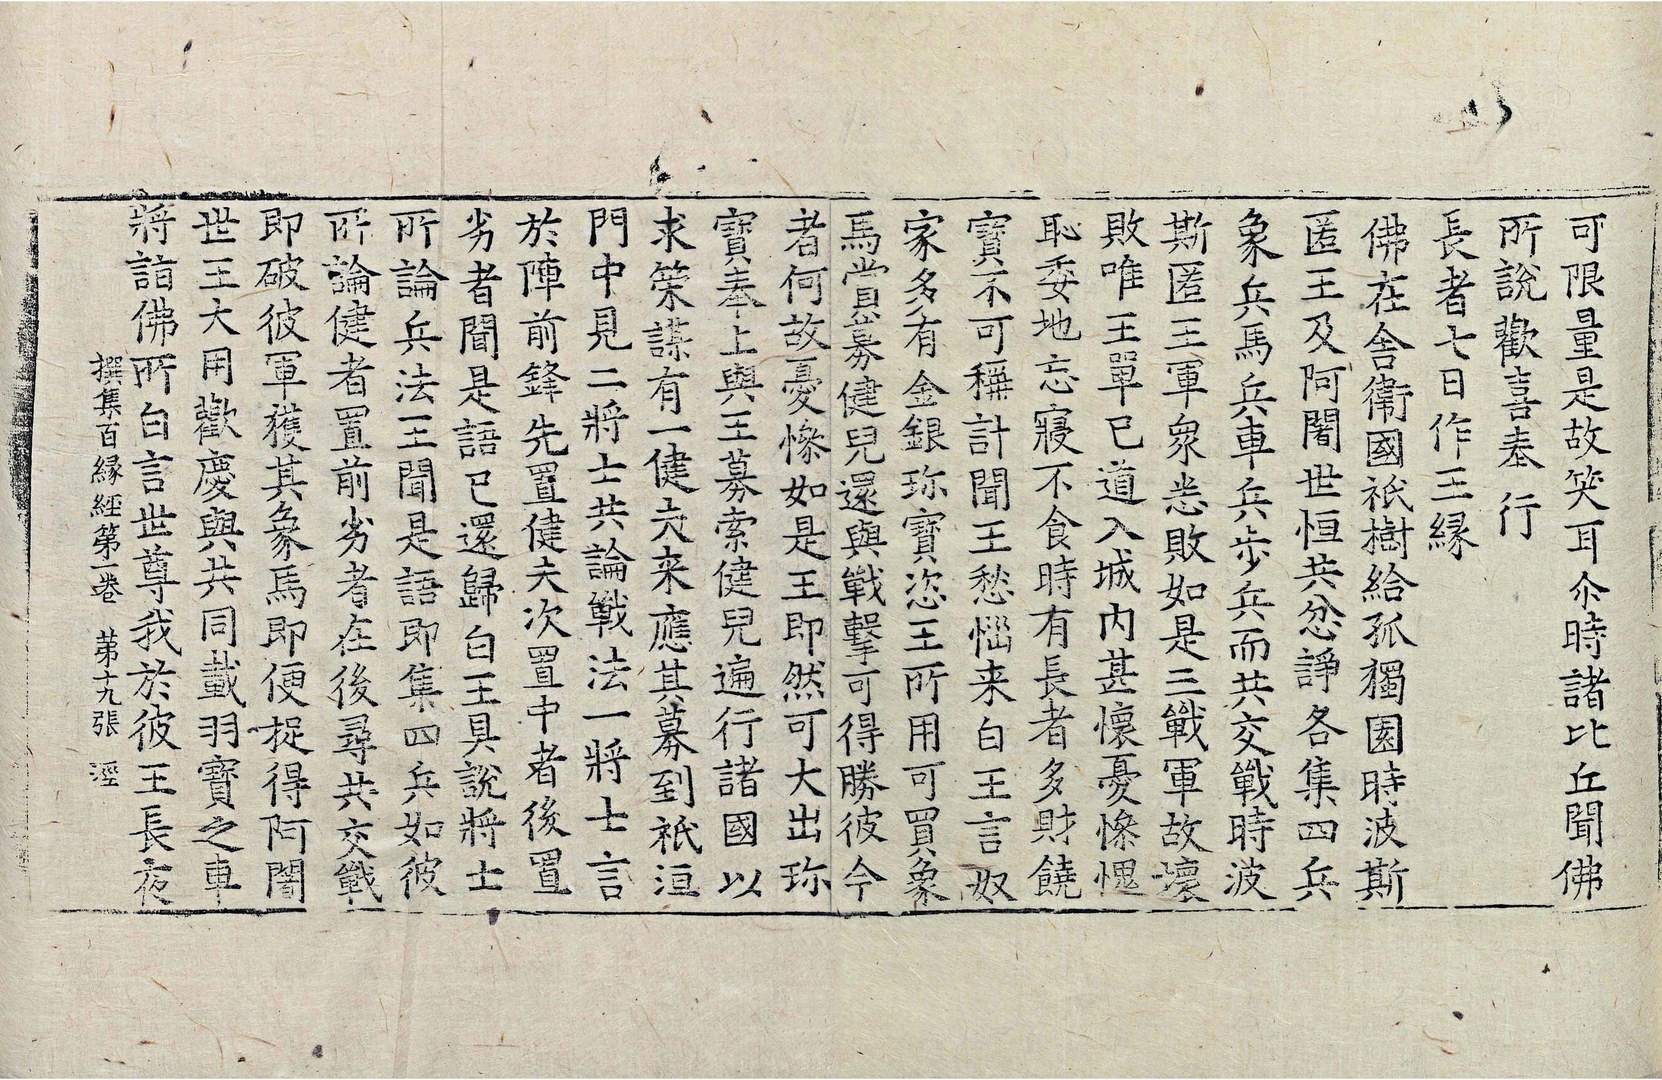 可限量是故笑耳尒時諸比丘聞佛
所說歡喜奉行
長者七日作王緣
佛在舍衛國祇樹給孤獨園時波斯
匿王及阿闍世恒共忿諍各集四兵
象兵馬兵車兵步兵而共交戰時波
斯匿王軍衆悉敗如是三戰軍故壞
敗唯王單已道入城內甚懷憂慘愧
恥委地忘寢不食時有長者多財饒
寶不可稱計聞王愁惱来白王言奴
家多有金銀珎寶恣王所用可買象
馬賞募健兒還與戰擊可得勝彼今
者何故憂慘如是王即然可大出珎
寶奉上與王募索健兒遍行諸國以
求策謀有一健夫来應其募到祇洹
門中見二將士共論戰法一將士言
於陣前鋒先置健夫次置中者後置
劣者聞是語已還歸白王具說將士
所論兵法王聞是語即集四兵如彼
所論健者置前劣者在後尋共交戰
即破彼軍獲其象馬即便捉得阿闍
世王大用歡慶與共同載羽寶之車
將詣佛所白言世尊我於彼王長夜
撰集百緣經第一卷 苐十九張 涇